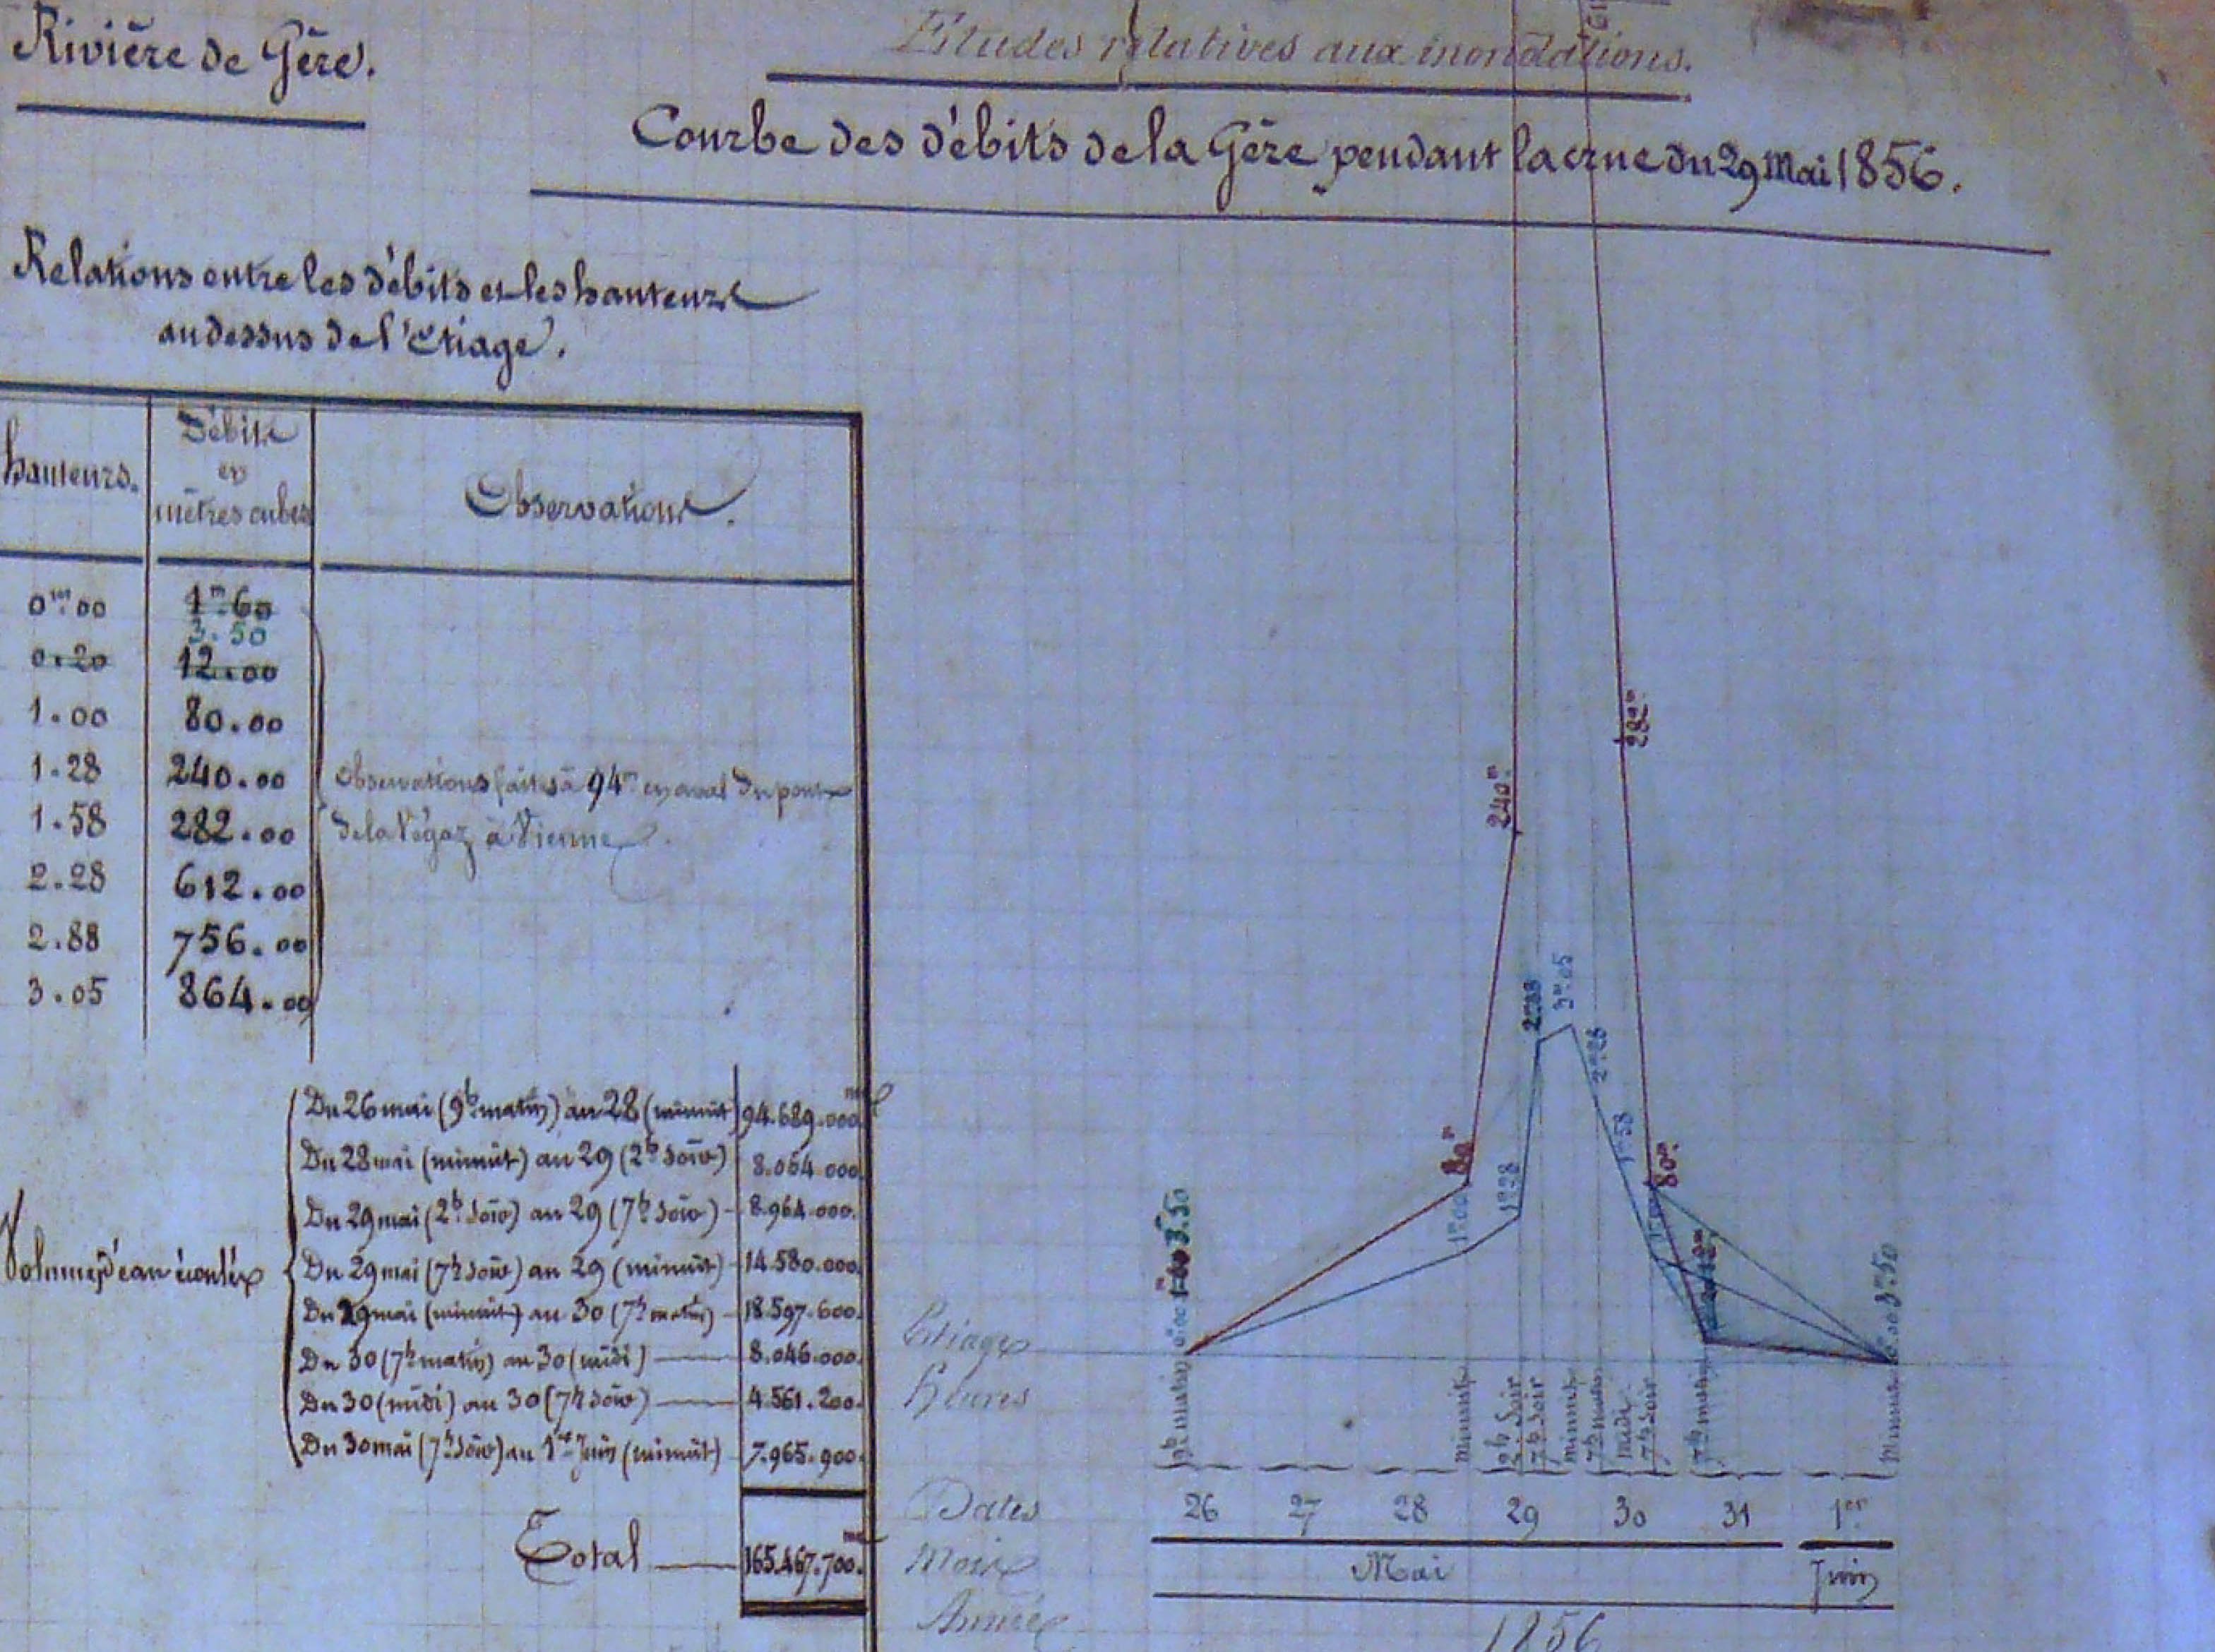 Rivière de Gère.
Etudes relatives aux inondations.
Courbe des débits de la Gère pendant la crue du 29 Mai 1856.
Relations entre les débits et les hauteurs
au dessus de l'Etiage.
hauteurs.
Débits
en
mètres cubes
Observations.
0m.00 1m.60
3.50
0.20 12.00
1.00 80.00
1.28 240.00
1.58 282.00
2.28 612.00
2.88 756.00
3.05 864.00
Observations faites à 94m en aval du pont
de la à Vienne
Volumes d'eau écoulés
Du 26 mai (9h matin) au 28 (minuit) 94.689.000
Du 28 mai (minuit) au 29 (2h Soir) 8.064.000
Du 29 mai (2h Soir) au 29 (7h Soir) - 8.964.000.
Du 29 mai (7h Soir) au 29 (minuit) - 14.580.000.
Du 29 mai (minuit) au 30 (7h matin) - 18.597.600.
Du 30 (7h matin) au 30 (midi) — 8.046.000.
Du 30 (midi) au 30 (7h Soir) — 4.561.200.
Du 30 mai (7h Soir) au 1er Juin (minuit) 7.965.900.
Total — 165.467.700.
240m
282m
80m
80m
2m88
3m05
2m28
1m58
1m28
1m00
3m50
0m00 3m50
Etiage
Heures
9h matin
Minuit
2h Soir
7h Soir
minuit
7h matin
midi
7h Soir
7h matin
Minuit
Dates 26 27 28 29 30 31 1er
Mois Mai Juin
Année 1856